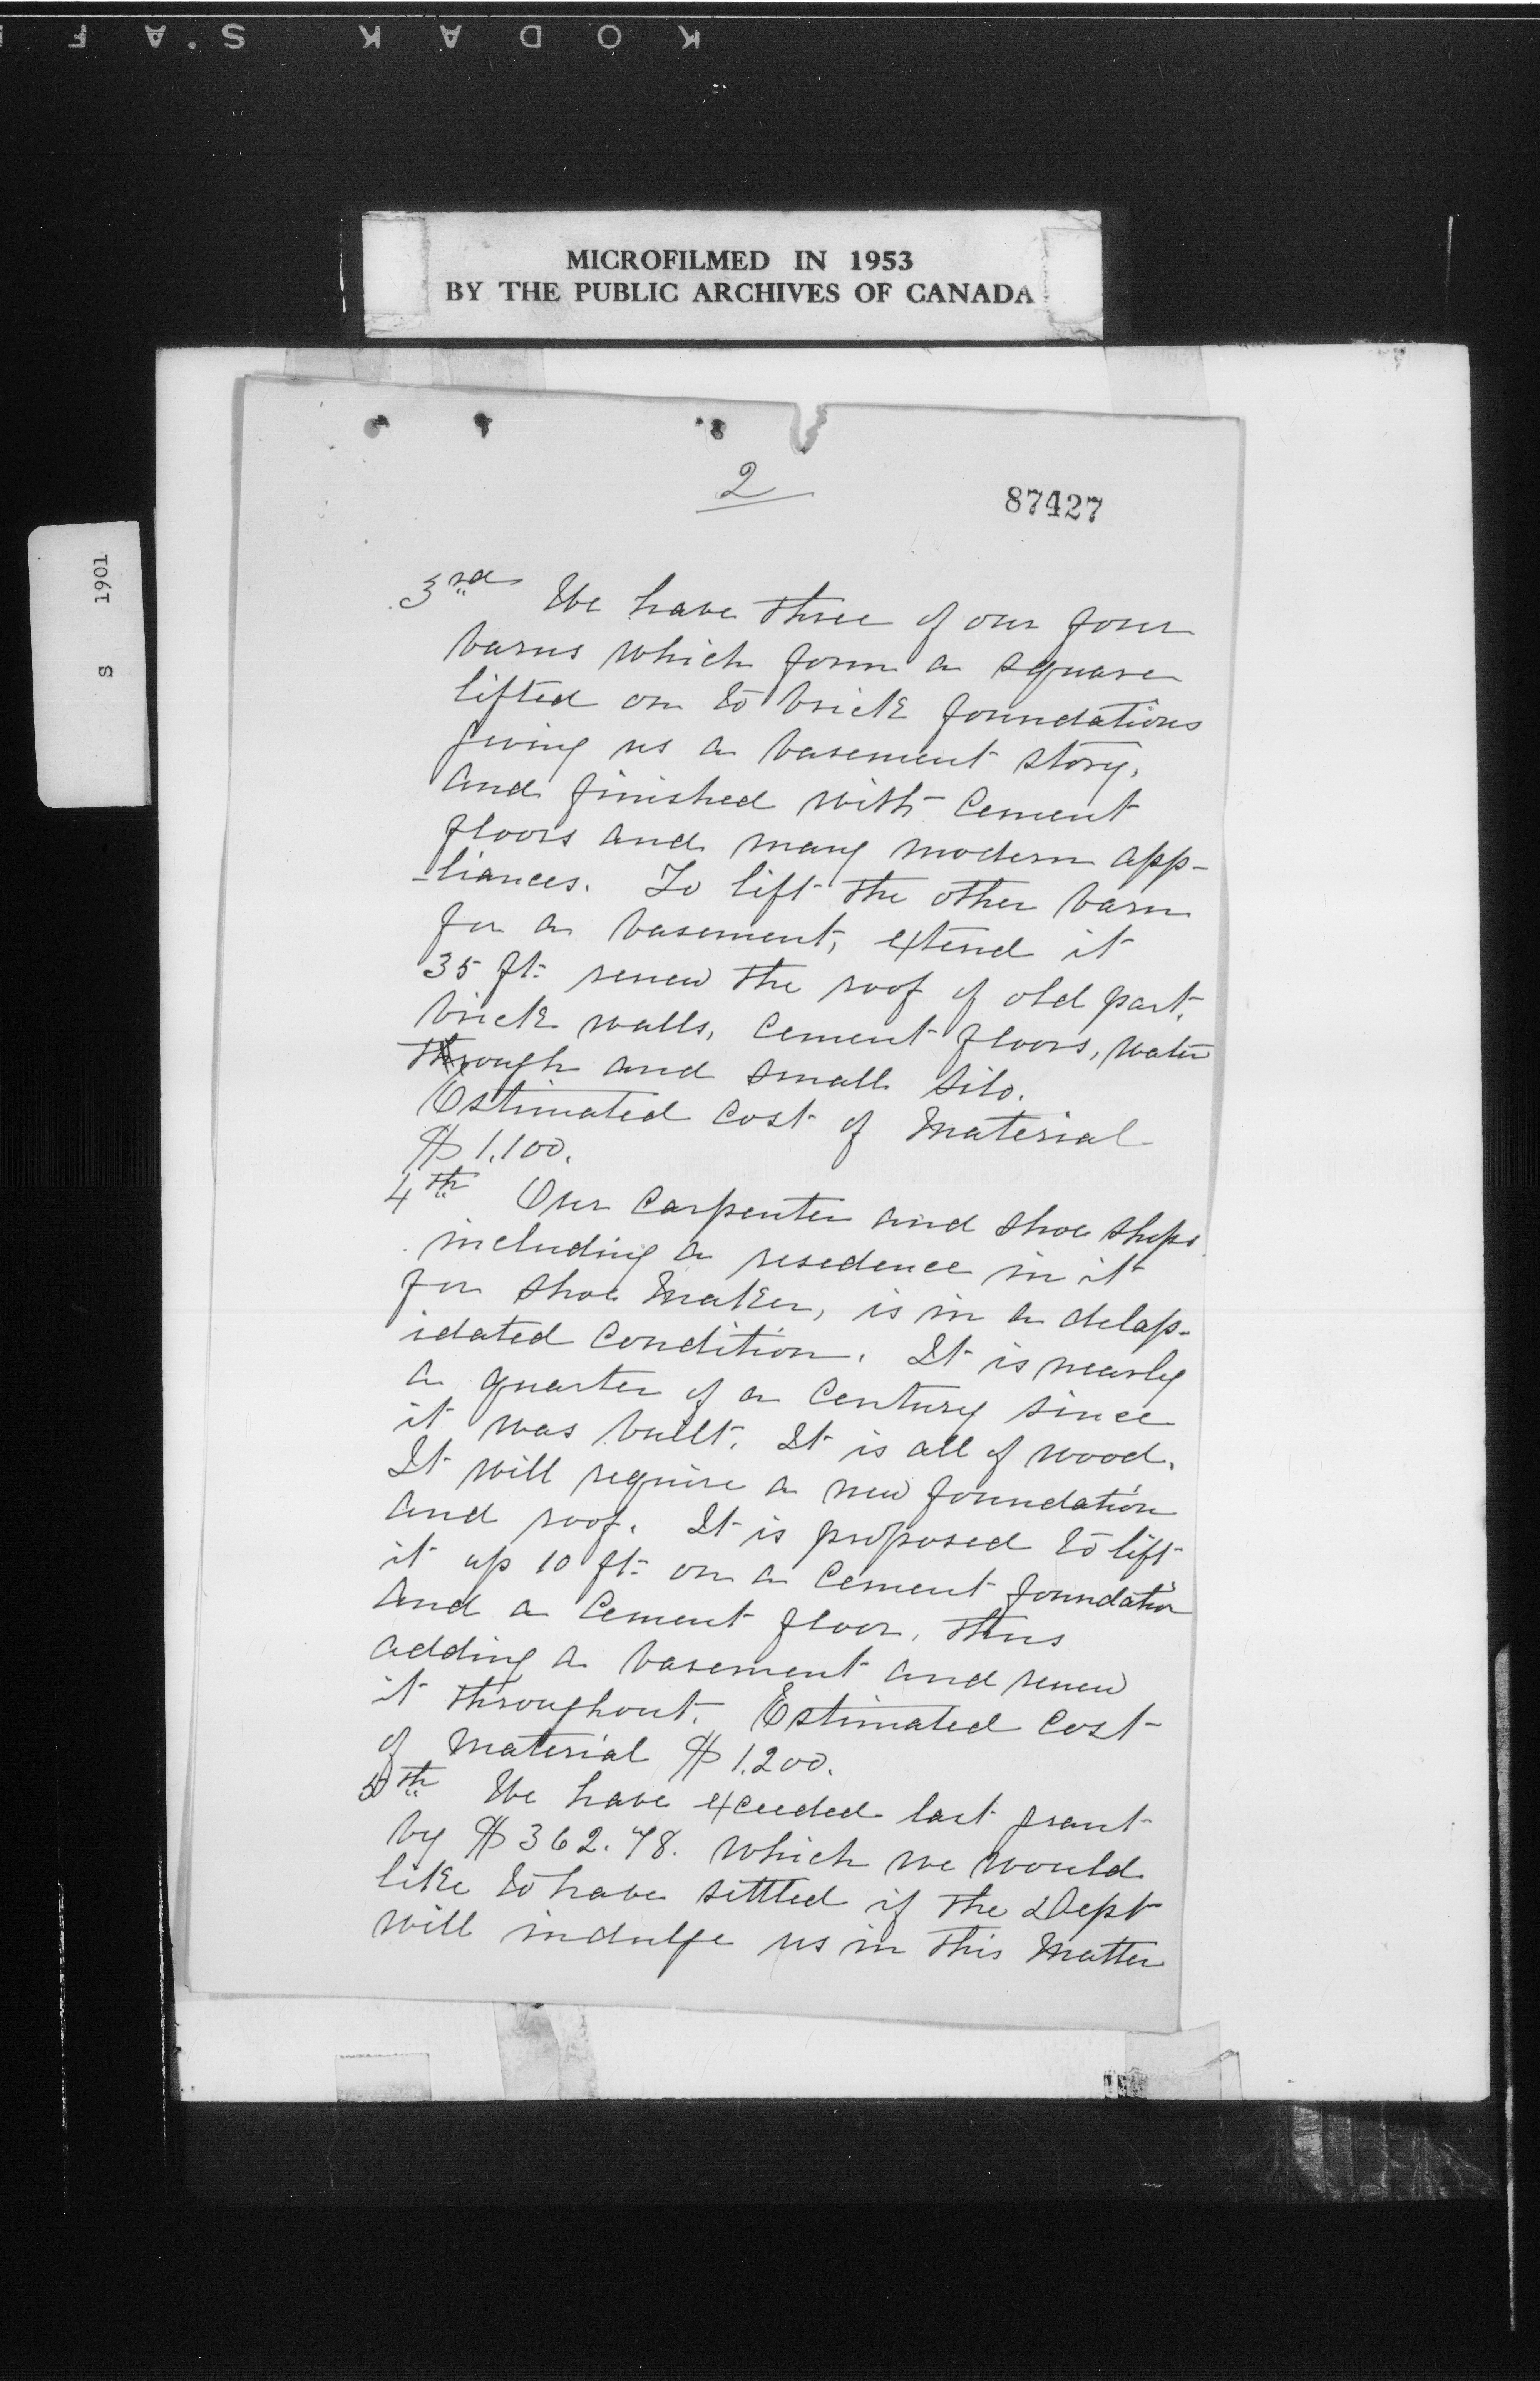 KODAK S.A F
MICROFILMED IN 1953
BY THE PUBLIC ARCHIVES OF CANADA
S 1901
2
87427
3rd We have three of our four
barns which form a square
lifted on to brick foundations
giving us a basement story,
and finished with cement
floors and many modern app-
-liances. To lift the other barn
for a basement, extend it
35 ft. renew the roof of old part,
brick walls, cement floors, water
through and small silo.
Estimated cost of Material
$1.100.
4th Our Carpenter and shoe shops
including a resedence in it
for shoe Maker, is in a delap-
idated condition. It is nearly
a quarter of a Century since
it was built. It is all of wood.
It will require a new foundation
and roof. It is proposed to lift
it up 10 ft. on a cement foundation
and a cement floor, thus
adding a basement and renew
it throughout. Estimated cost
of Material $1.200.
5th We have exceeded last grant
by $362.78. which we would
like to have settled if the Dept
will indulge us in this Matter